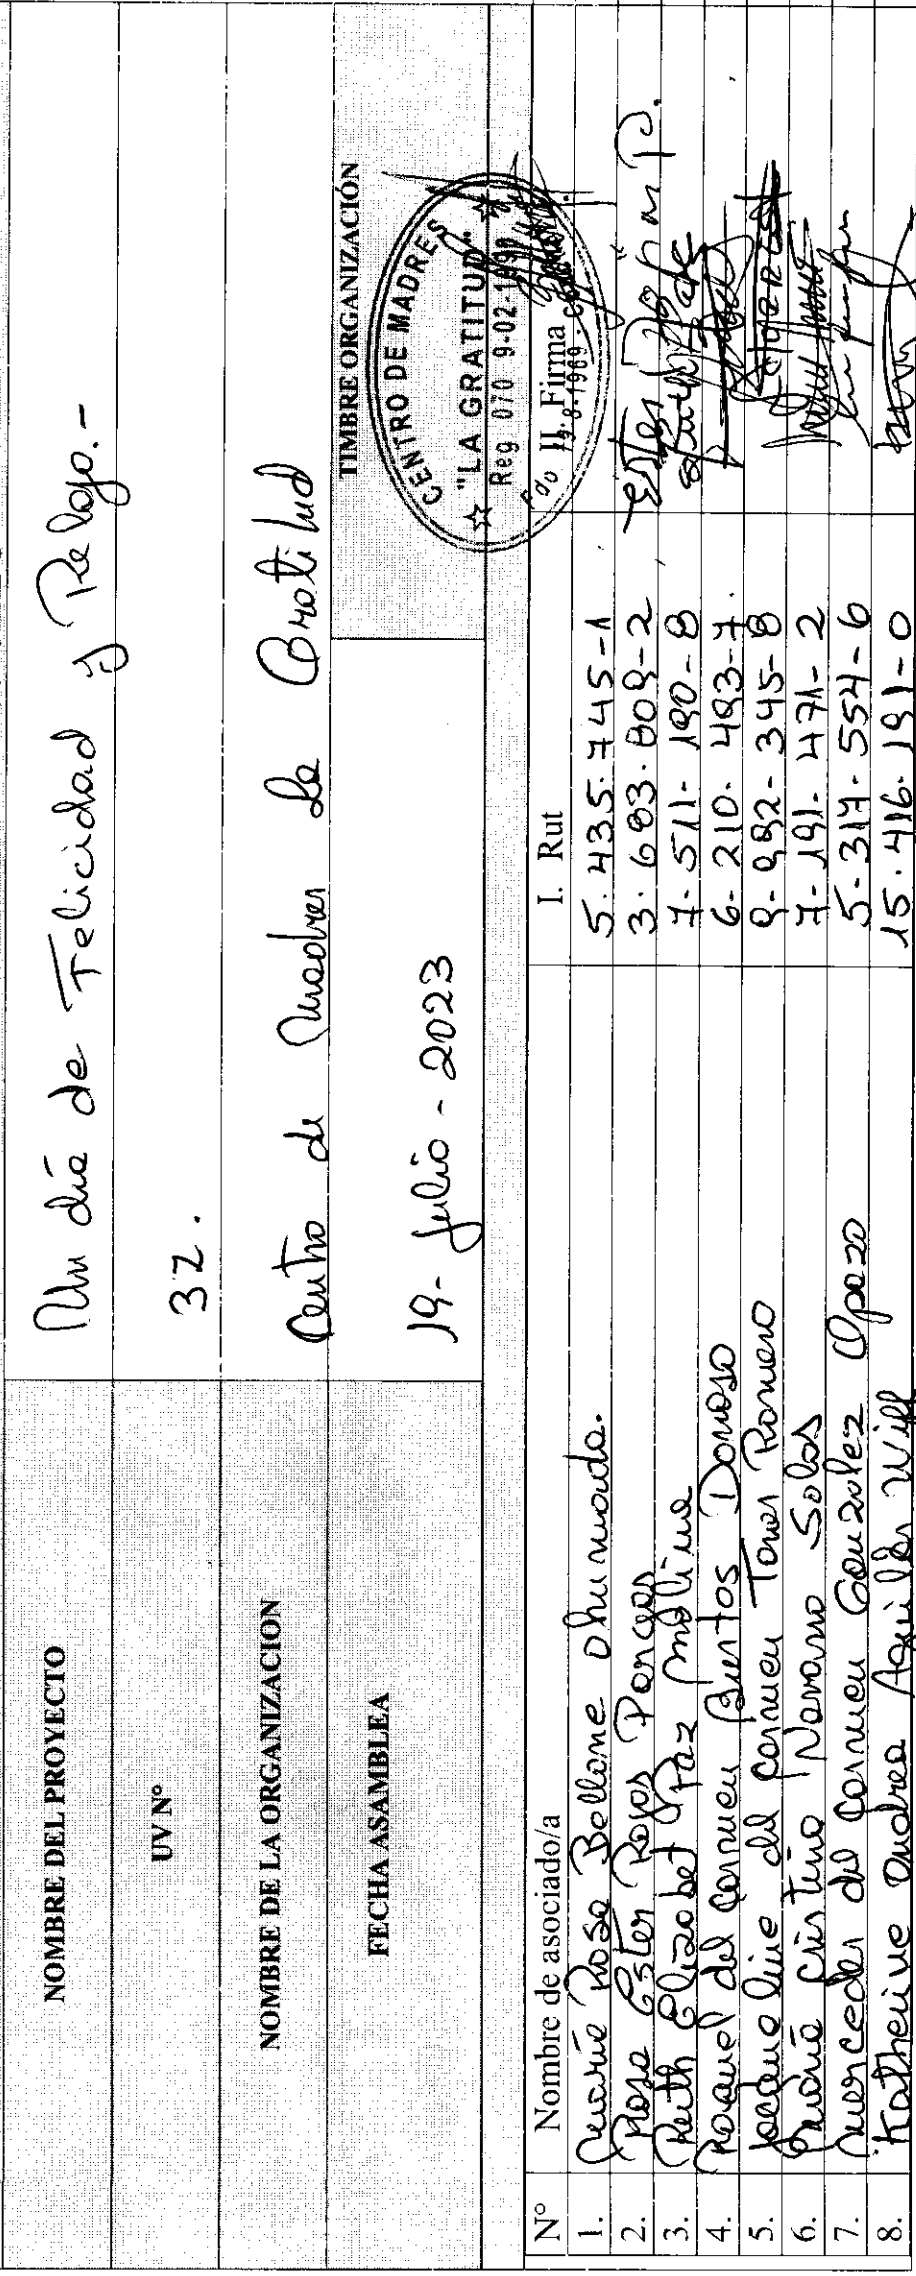 NOMBRE DEL PROYECTO Un día de Felicidad y Relajo.-
UV N° 32.
NOMBRE DE LA ORGANIZACION Centro de Madres La Gratitud
FECHA ASAMBLEA 19- Julio - 2023
TIMBRE ORGANIZACIÓN
CENTRO DE MADRES
"LA GRATITUD"
Reg 070 9-02-1990
Fdo 19-8-1969
N° Nombre de asociado/a I. Rut II. Firma
1. María Rosa Bellone Ahumada. 5.435.745-1
2. Rosa Ester Rojas Pargas 3.683.808-2 Ester Rojas P.
3. Ruth Elizabet Paz Molina 7-511-190-8 Ruth Paz
4. Raquel del Carmen Bustos Donoso 6-210-493-7.
5. Jacqueline del Carmen Torres Romero 9-992-345-8
6. María Cristina Navarro Solas 7-191-471-2
7. Mercedes del Carmen González Opazo 5-317-554-6
8. Katheine Andrea Aguilar Wiff 15.416.191-0